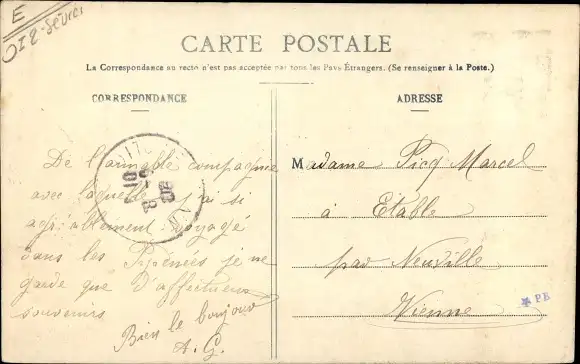 E
DI 2-Sèvres
CARTE POSTALE
La Correspondance au recto n'est pas acceptée par tous les Pays Étrangers. (Se renseigner à la Poste.)
CORRESPONDANCE
De l'aimable compagnie
avec laquelle j'ai si
agréablement voyagé
dans les Pyrénées je ne
garde que d'affectueux
souvenirs
Bien le bonjour
A. G.
ADRESSE
Madame Picq Marcel
à Etable
par Neuville
Vienne
PE